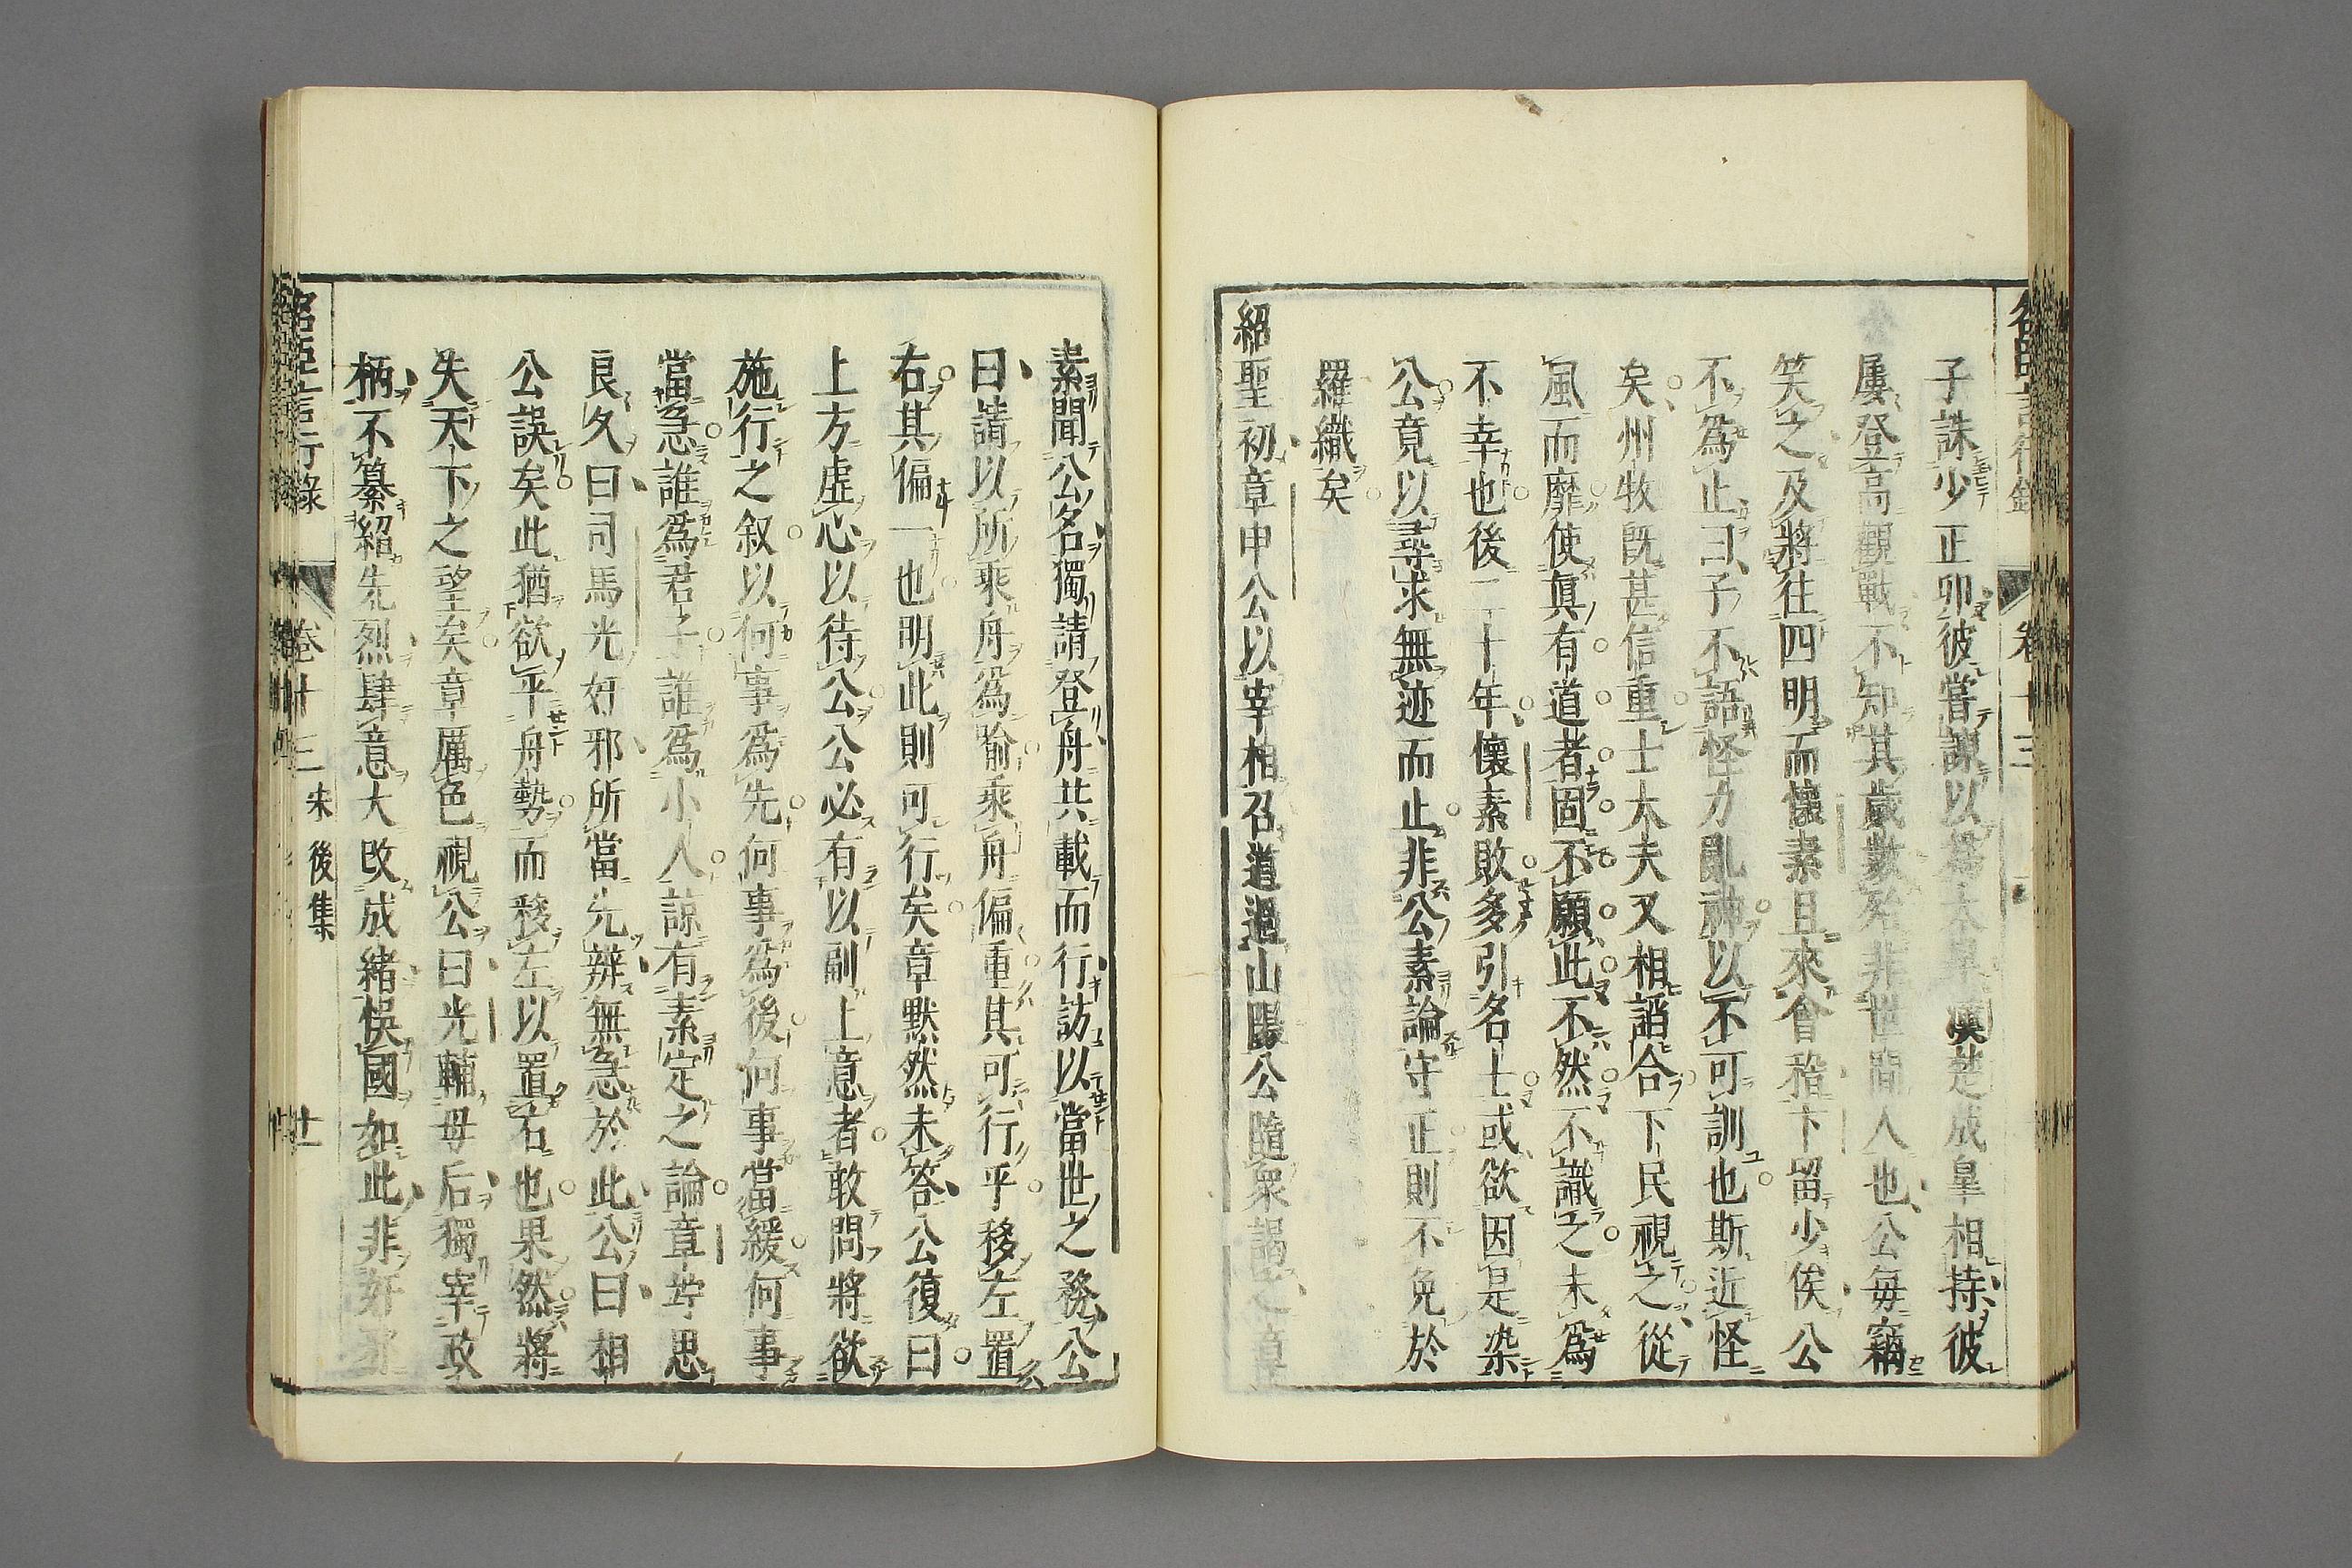 子誅少正卯彼嘗諫以爲太早漢楚成皐相持彼
屢登高觀戰不知其歲數殆非世間人也公每竊
笑之及將往四明而懷素且來會稽下留少俟公
不爲止曰子不語怪力亂神以不可訓也斯近怪
矣州牧旣甚信重士大夫又相諂合下民視之從
風而靡使眞有道者固不願此不然不識之未爲
不幸也後二十年懷素敗多引名士或欲因是染
公竟以尋求無迹而止非公素論守正則不免於
羅織矣
紹聖初章申公以宰相召道過山陽公隨衆謁之章
素聞公名獨請登舟共載而行訪以當世之務公
曰請以所乘舟爲喻乘舟偏重其可行乎移左置
右其偏一也明此則可行矣章默然未答公復曰
上方虛心以待公公必有以副上意者敢問將欲
施行之叙以何事爲先何事爲後何事當緩何事
當急誰爲君子誰爲小人諒有素定之論章竚思
良久曰司馬光奸邪所當先辨無急於此公曰相
公誤矣此猶欲平舟勢而移左以置右也果然將
失天下之望矣章厲色視公曰光輔母后獨宰政
柄不纂紹先烈肆意大改成緒悞國如此非奸邪
名臣言行錄 卷十三 宋後集 廿